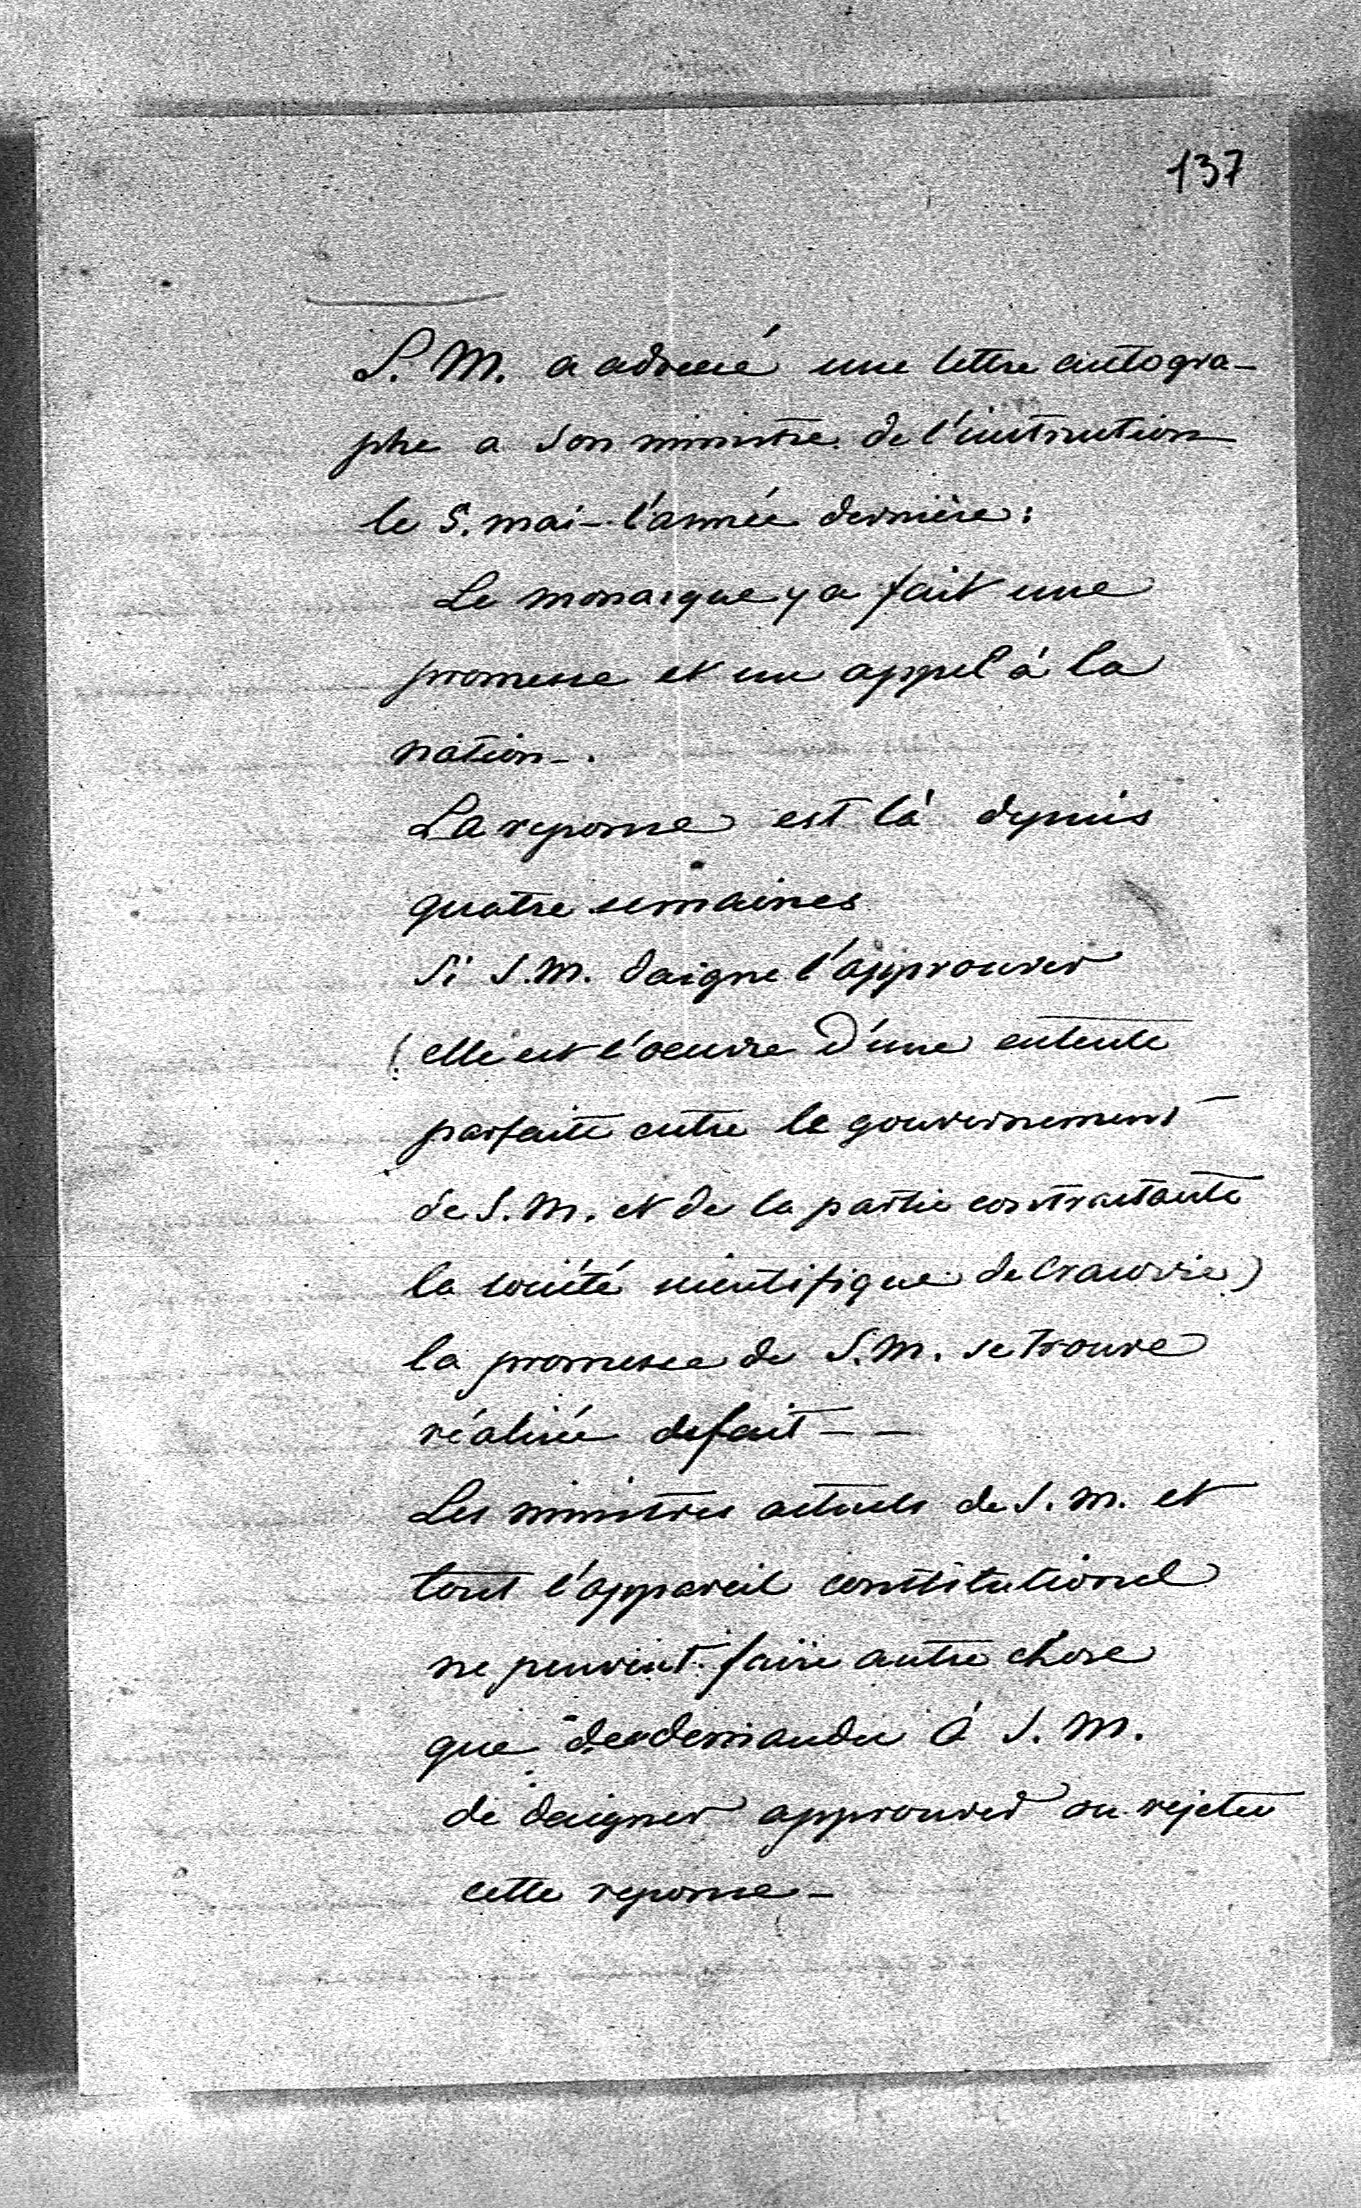 137
S. M. a adressé une lettre autogra-
phe a son ministre de l'instruction
le 5. mai - l'année dernière:
Le monarque y a fait une
promesse et un appel à la
nation -.
La reponse est là depuis
quatre semaines
Si S. M. daigne l'approuver
(elle est l'oeuvre d'une entente
parfaite entre le gouvernement
de S. M. et de la partie contractante
la société scientifique de Cracovie)
la promesse de S. M. se trouve
réalisée de fait - -
Les ministres actuels de S. M. et
tout l'appareil constitutionel
ne peuvent faire autre chose
que demander à S. M.
de daigner approuver ou rejeter
cette reponse -